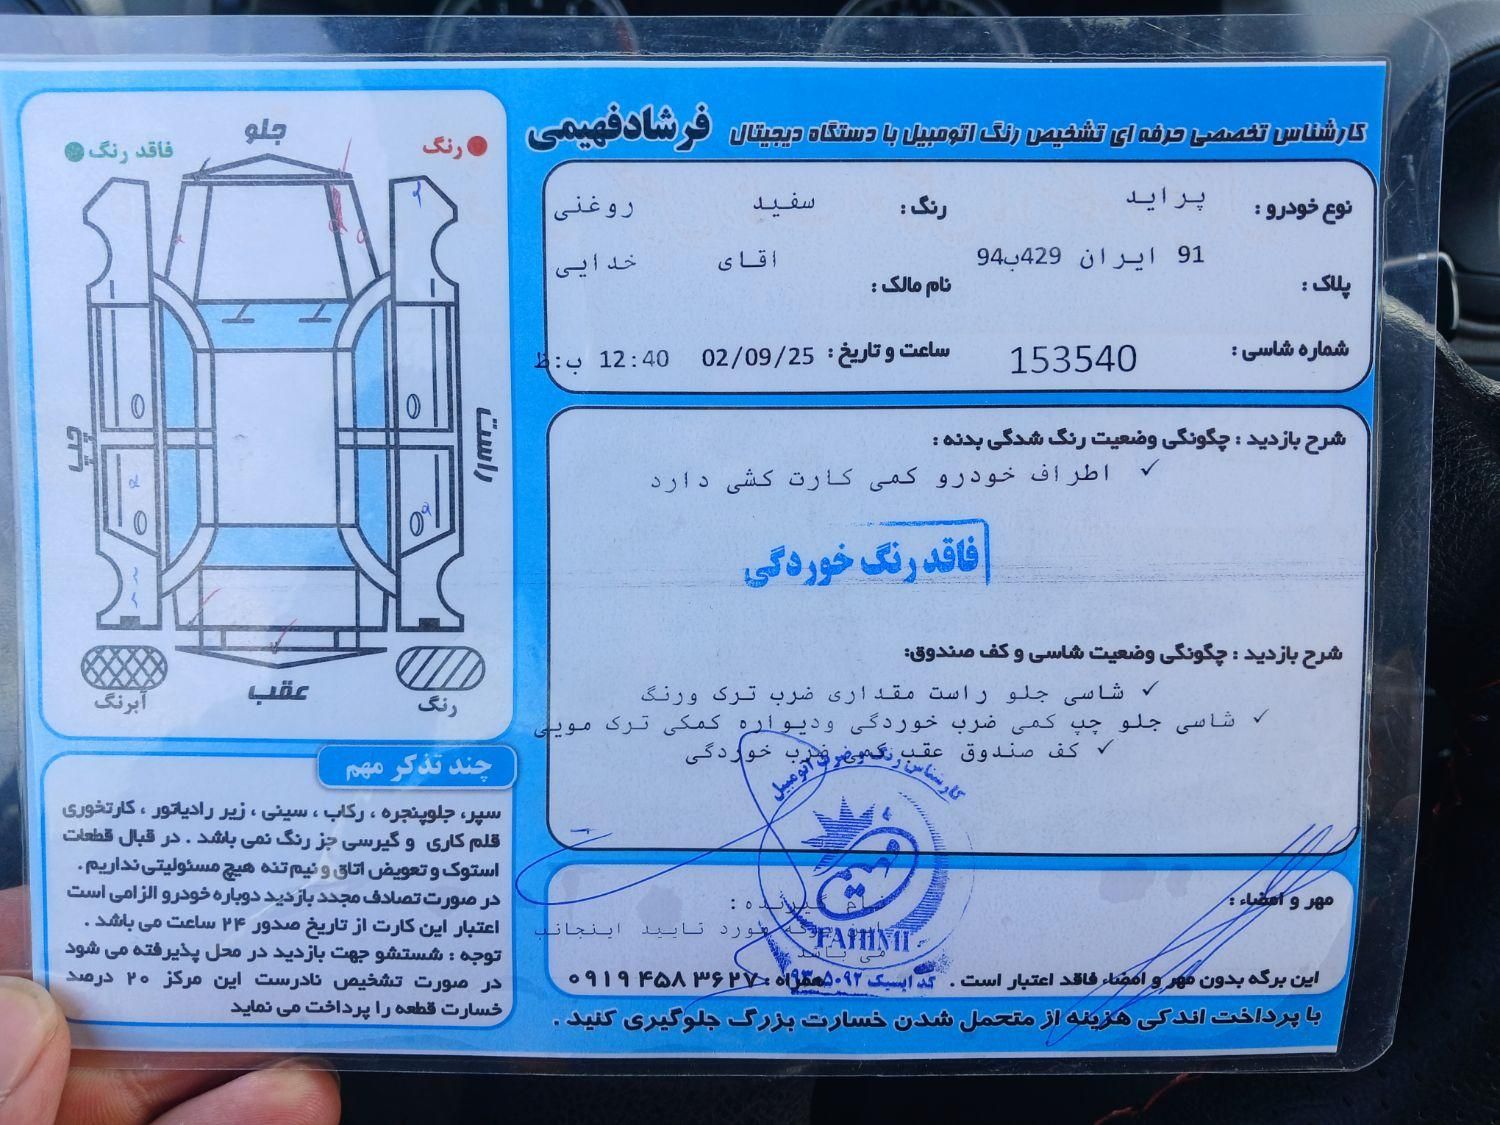 کارشناس تخصصی حرفه ای تشخیص رنگ اتومبیل با دستگاه دیجیتال فرشادفهیمی
نوع خودرو : پراید رنگ : سفید روغنی
پلاک : 91 ایران 429ب94 نام مالک : اقای خدایی
شماره شاسی : 153540 ساعت و تاریخ : 02/09/25 12:40 ب:ظ
شرح بازدید : چگونگی وضعیت رنگ شدگی بدنه :
✓ اطراف خودرو کمی کارت کشی دارد
فاقد رنگ خوردگی
شرح بازدید : چگونگی وضعیت شاسی و کف صندوق:
✓ شاسی جلو راست مقداری ضرب ترک ورنگ
✓ شاسی جلو چپ کمی ضرب خوردگی ودیواره کمکی ترک مویی
✓ کف صندوق عقب کمی ضرب خوردگی
کارشناس رنگ و ضرب اتومبیل
فهیمی
FAHIMI
کد ایسیک
مهر و امضاء :
نام گیرنده :
این برگه مورد تایید اینجانب
می باشد
این برگه بدون مهر و امضاء فاقد اعتبار است . همراه : ۰۹۱۹ ۴۵۸ ۳۶۲۷
با پرداخت اندکی هزینه از متحمل شدن خسارت بزرگ جلوگیری کنید .
جلو
رنگ
فاقد رنگ
راست
چپ
عقب
رنگ
آبرنگ
چند تذکر مهم
سپر، جلوپنجره ، رکاب ، سینی ، زیر رادیاتور ، کارتخوری
قلم کاری و گیرسی جز رنگ نمی باشد . در قبال قطعات
استوک و تعویض اتاق و نیم تنه هیچ مسئولیتی نداریم .
در صورت تصادف مجدد بازدید دوباره خودرو الزامی است
اعتبار این کارت از تاریخ صدور ۲۴ ساعت می باشد .
توجه : شستشو جهت بازدید در محل پذیرفته می شود
در صورت تشخیص نادرست این مرکز ۲۰ درصد
خسارت قطعه را پرداخت می نماید